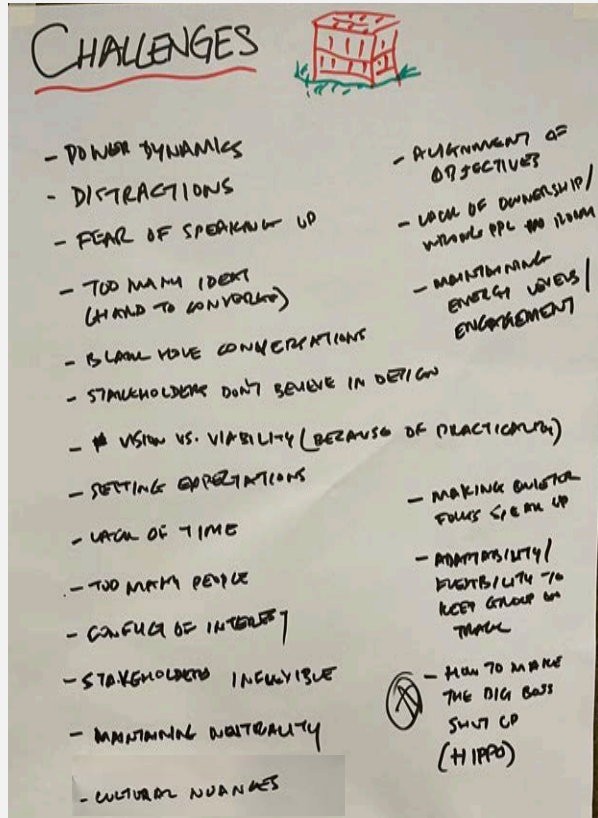 CHALLENGES
- POWER DYNAMICS
- DISTRACTIONS
- FEAR OF SPEAKING UP
- TOO MANY IDEAS
(HARD TO CONVERGE)
- BLACK HOLE CONVERSATIONS
- STAKEHOLDERS DON'T BELIEVE IN DESIGN
- VISION VS. VIABILITY (BECAUSE OF PRACTICALITY)
- SETTING EXPECTATIONS
- LACK OF TIME
- TOO MANY PEOPLE
- CONFLICT OF INTEREST
- STAKEHOLDERS INFLEXIBLE
- MAINTAINING NEUTRALITY
- CULTURAL NUANCES
- ALIGNMENT OF
OBJECTIVES
- LACK OF OWNERSHIP/
WRONG PPL IN ROOM
- MAINTAINING
ENERGY LEVELS/
ENGAGEMENT
- MAKING QUIETER
FOLKS SPEAK UP
- ADAPTABILITY/
FLEXIBILITY TO
KEEP GROUP ON
TRACK
- HOW TO MAKE
THE BIG BOSS
SHUT UP
(HIPPO)